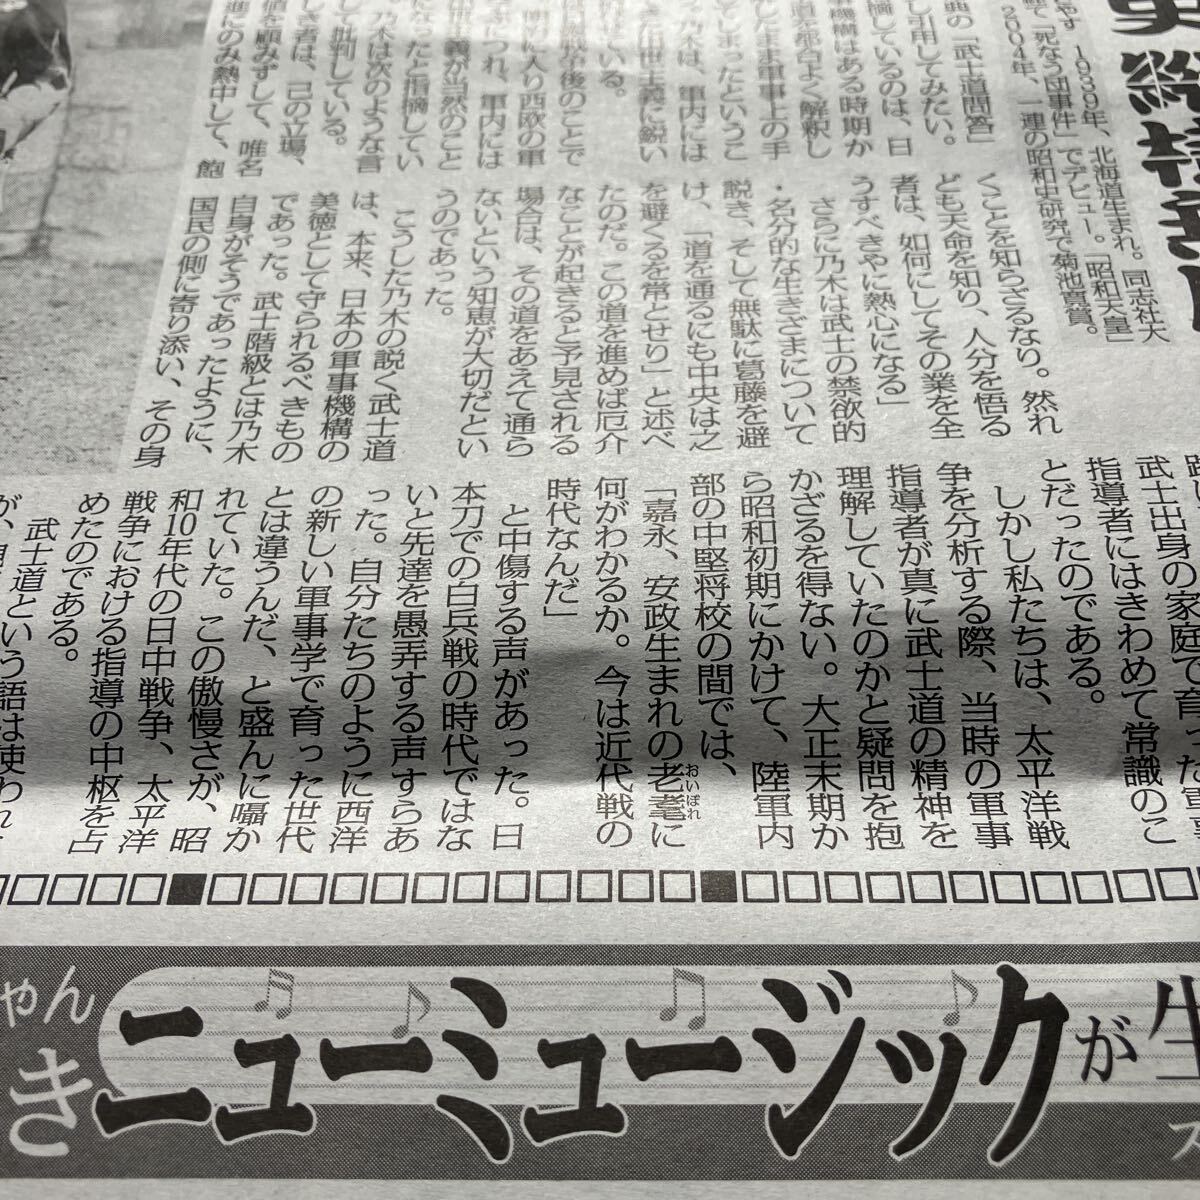 やす 1939年、北海道生まれ。同志社大
「死なう団事件」でデビュー。「昭和天皇」
2004年、一連の昭和史研究で菊池寛賞。
典の「武士道問答」
し引用してみたい。
摘しているのは、日
機構はある時期か
道を都合よく解釈し
したまま軍事上の手
てしまったというこ
乃木は、軍内には
出世主義に鋭い
ている。
後のことで
期に入り西欧の軍
につれ、軍内には
主義が当然のこと
なったと指摘してい
乃木は次のような言
て批判している。
しき者は、己の立場、
値を顧みずして、唯名
進にのみ熱中して、飽
くことを知らざるなり。然れ
ども天命を知り、人分を悟る
者は、如何にしてその業を全
うすべきやに熱心になる」
さらに乃木は武士の禁欲的
・名分的な生きざまについて
説き、そして無駄に葛藤を避
け、「道を通るにも中央は之
を避くるを常とせり」と述べ
たのだ。この道を進めば厄介
なことが起きると予見される
場合は、その道をあえて通ら
ないという知恵が大切だとい
うのであった。
こうした乃木の説く武士道
は、本来、日本の軍事機構の
美徳として守られるべきもの
であった。武士階級とは乃木
自身がそうであったように、
国民の側に寄り添い、その身
武士出身の家庭で育った軍事
指導者にはきわめて常識のこ
とだったのである。
しかし私たちは、太平洋戦
争を分析する際、当時の軍事
指導者が真に武士道の精神を
理解していたのかと疑問を抱
かざるを得ない。大正末期か
ら昭和初期にかけて、陸軍内
部の中堅将校の間では、
「嘉永、安政生まれの老耄においぼれ
何がわかるか。今は近代戦の
時代なんだ」
と中傷する声があった。日
本刀での白兵戦の時代ではな
いと先達を愚弄する声すらあ
った。自分たちのように西洋
の新しい軍事学で育った世代
とは違うんだ、と盛んに囁か
れていた。この傲慢さが、昭
和10年代の日中戦争、太平洋
戦争における指導の中枢を占
めたのである。
武士道という語は使われ
ゃん
き
ニューミュージックが生